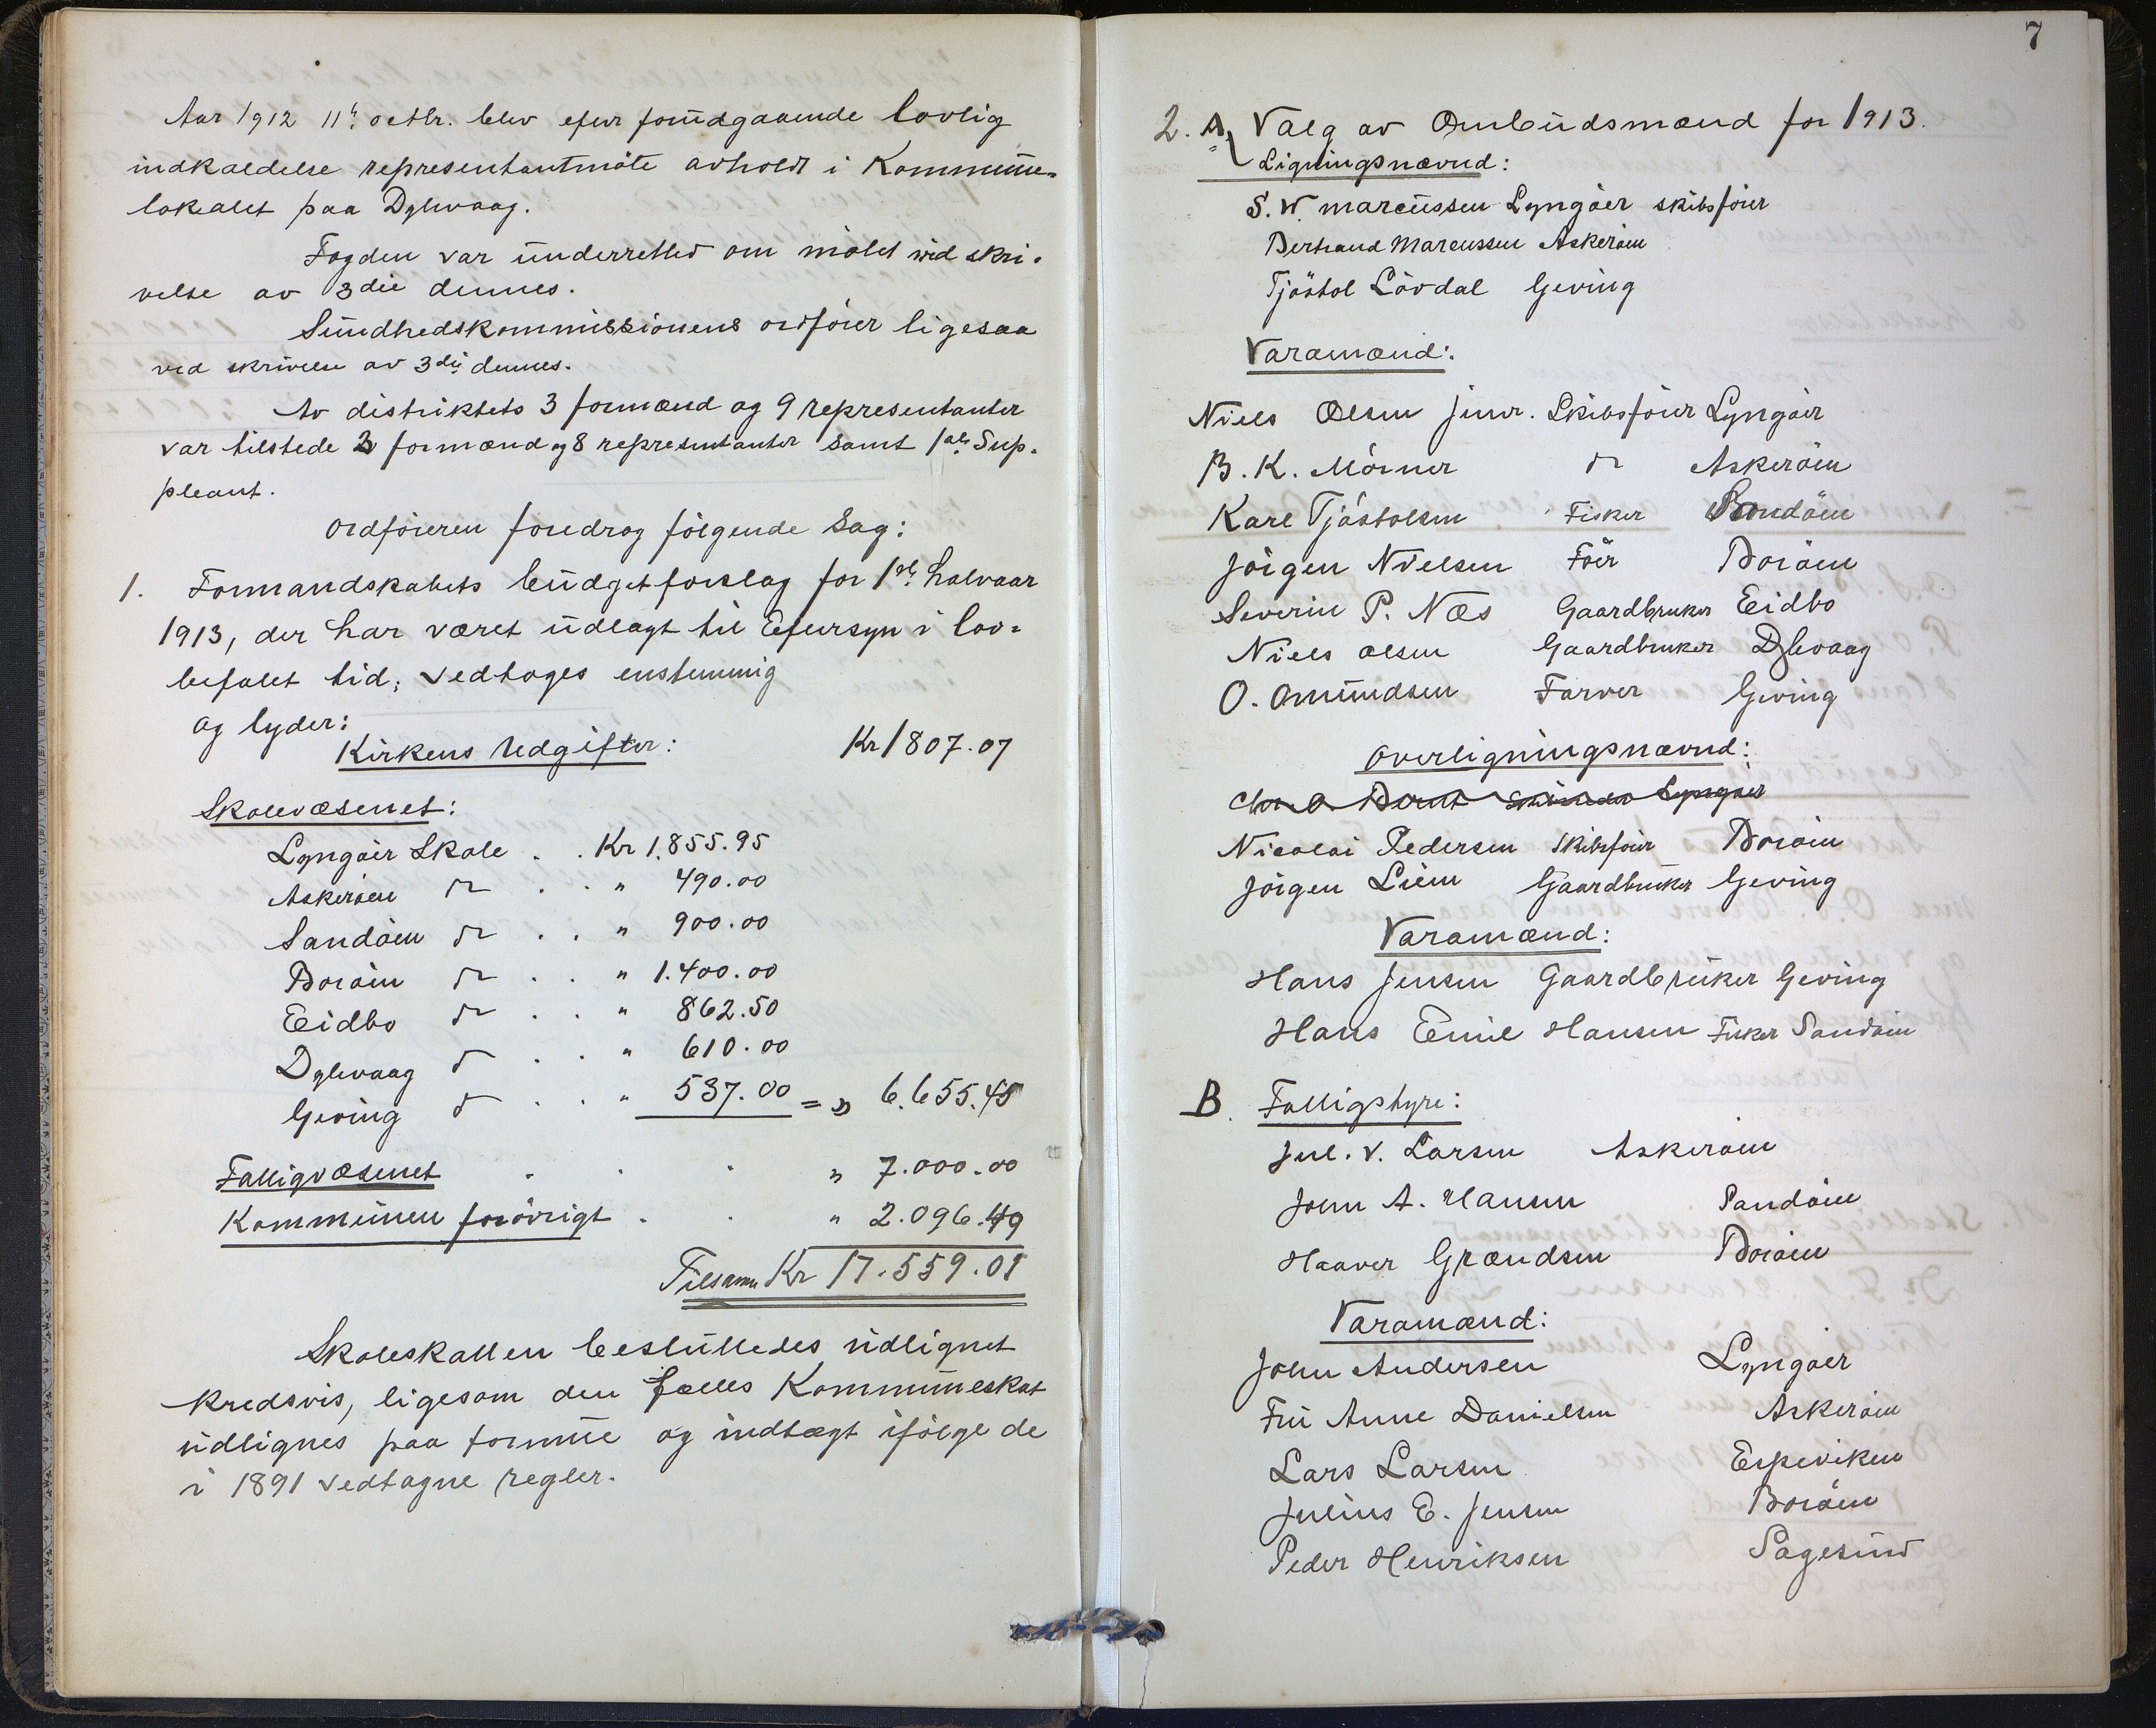 Aar 1912 11te octbr. blev efter forudgaaende lovlig
indkaldelse representantmöte avholdt i Kommune-
lokalet paa Dybvaag.
Fogden var underrettet om mötet ved skri-
velse av 3die dennes.
Sundhedskommissionens ordförer ligesaa
ved skrivelse av 3die dennes.
Av distriktets 3 formænd og 9 representanter
var tilstede 3 formænd og 8 representanter samt 1ste Sup-
pleant.
Ordföreren foredrog fölgende Sag:
1. Formandskabets budgetforslag for 1ste halvaar
1913, der har været udlagt til Eftersyn i lov-
befalet tid; vedtoges enstemmig
og lyder:
Kirkens Udgifter: Kr 1807.07
Skolevæsenet:
Lyngöer Skole . . Kr 1.855.95
Askeröen do . . " 490.00
Sandöen do . . " 900.00
Boröen do . . " 1.400.00
Eidbo do . . " 862.50
Dybvaag do . . " 610.00
Geving do . . " 537.00 = " 6.655.45
Fattigvæsenet . . . " 7.000.00
Kommunen forövrigt . . " 2.096.49
Tilsamm Kr 17.559.01
Skoleskatten besluttedes udlignet
kredsvis, ligesom den fælles Kommuneskat
udlignes paa formue og indtægt ifölge de
i 1891 vedtagne regler.
7
2. A, Valg av Ombudsmænd for 1913.
Ligningsnævnd:
S. W. Marcussen Lyngöer skibsförer
Bertrand Marcussen Askeröen
Tjöstol Lövdal Geving
Varamænd:
Niels Olsen junr. Skibsförer Lyngöer
B. K. Mörner do Askeröen
Karl Tjöstolsen Fisker Sandöen
Jörgen Nielsen Förer Boröen
Severin P. Næs Gaardbruker Eidbo
Niels Olsen Gaardbruker Dybvaag
O. Omundsen Farver Geving
Overligningsnævnd:
Lyngöer
Nicolai Pedersen Skibsförer Boröen
Jörgen Liem Gaardbruker Geving
Varamænd:
Hans Jensen Gaardbruker Geving
Hans Emil Hansen Fisker Sandöen
B. Fattigstyre:
Jul. V. Larsen Askeröen
John A. Hansen Sandöen
Haaver Grændsen Boröen
Varamænd:
John Andersen Lyngöer
Fru Anne Danielsen Askeröen
Lars Larsen Espeviken
Julius E. Jensen Boröen
Peder Henriksen Sagesund